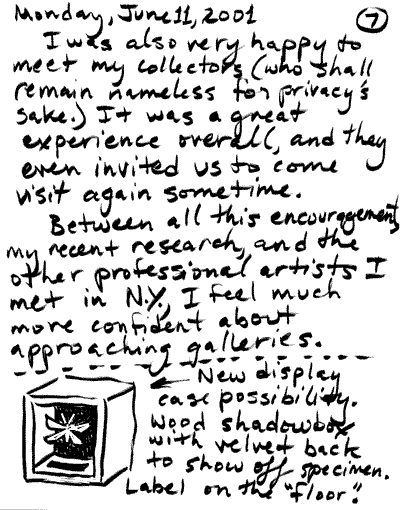 Monday, June 11, 2001 7
I was also very happy to
meet my collectors (who shall
remain nameless for privacy's
sake.) It was a great
experience overall, and they
even invited us to come
visit again sometime.
Between all this encouragement,
my recent research, and the
other professional artists I
met in N.Y., I feel much
more confident about
approaching galleries.
New display
case possibility.
Wood shadowbox
with velvet back
to show off specimen.
Label on the "floor".